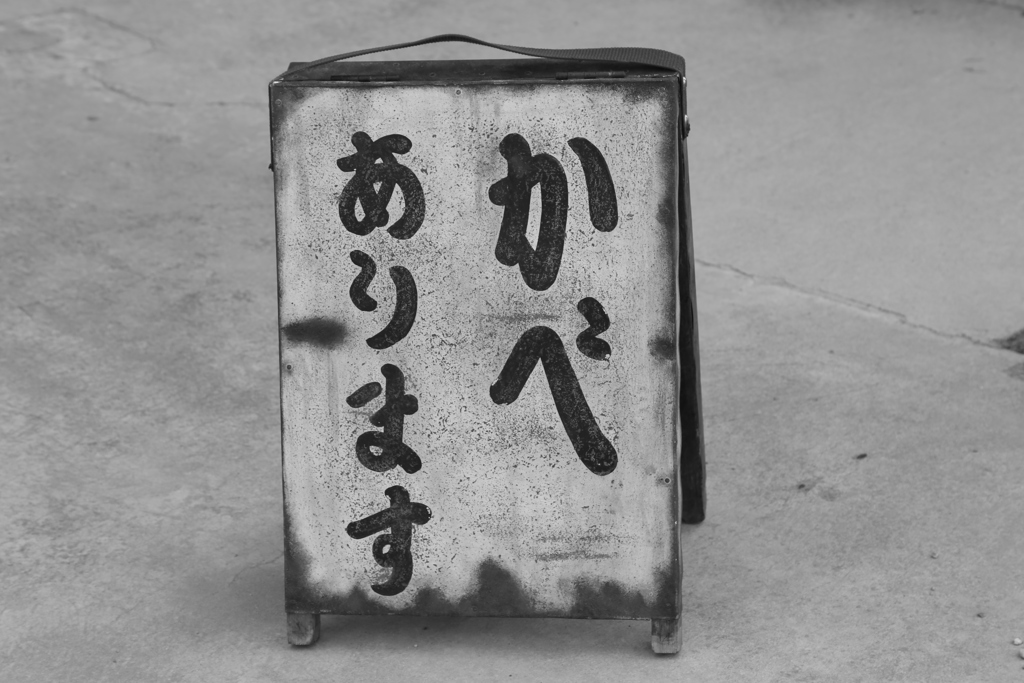 かべ
あります